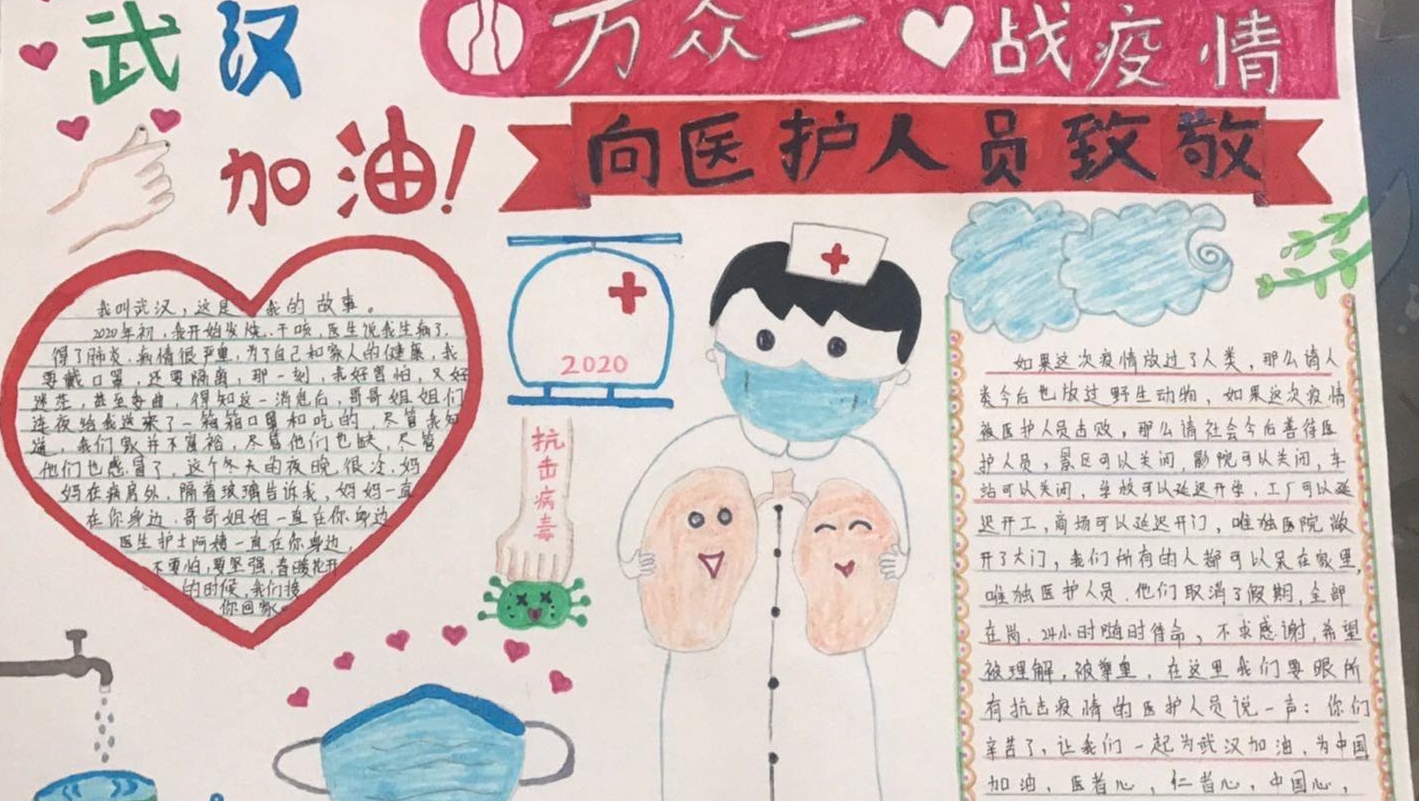 武汉
加油!
万众一战疫情
向医护人员致敬
我叫武汉，这是我的故事。
2020年初，我开始发烧、干咳，医生说我生病了，
得了肺炎，病情很严重，为了自己和家人的健康，我
要戴口罩，还要隔离，那一刻，我好害怕，又好
迷茫，甚至委曲，得知这一消息后，哥哥姐姐们
连夜给我送来了一箱箱口罩和吃的，尽管我知
道，我们家并不富裕，尽管他们也缺，尽管
他们也感冒了，这个冬天的夜晚，很冷，妈
妈在病房外，隔着玻璃告诉我，妈妈一直
在你身边，哥哥姐姐一直在你身边
医生护士阿姨一直在你身边，
不要怕，要坚强，春暖花开
的时候，我们接
你回家。
2020
抗击病毒
如果这次疫情放过了人类，那么请人
类今后也放过野生动物，如果这次疫情
被医护人员击败，那么请社会今后善待医
护人员，景区可以关闭，影院可以关闭，车
站可以关闭，学校可以延迟开学，工厂可以延
迟开工，商场可以延迟开门，唯独医院敞
开了大门，我们所有的人都可以呆在家里，
唯独医护人员，他们取消了假期，全部
在岗，24小时随时待命，不求感谢，希望
被理解，被尊重，在这里我们要跟所
有抗击疫情的医护人员说一声：你们
辛苦了，让我们一起为武汉加油，为中国
加油，医者心，仁者心，中国心，